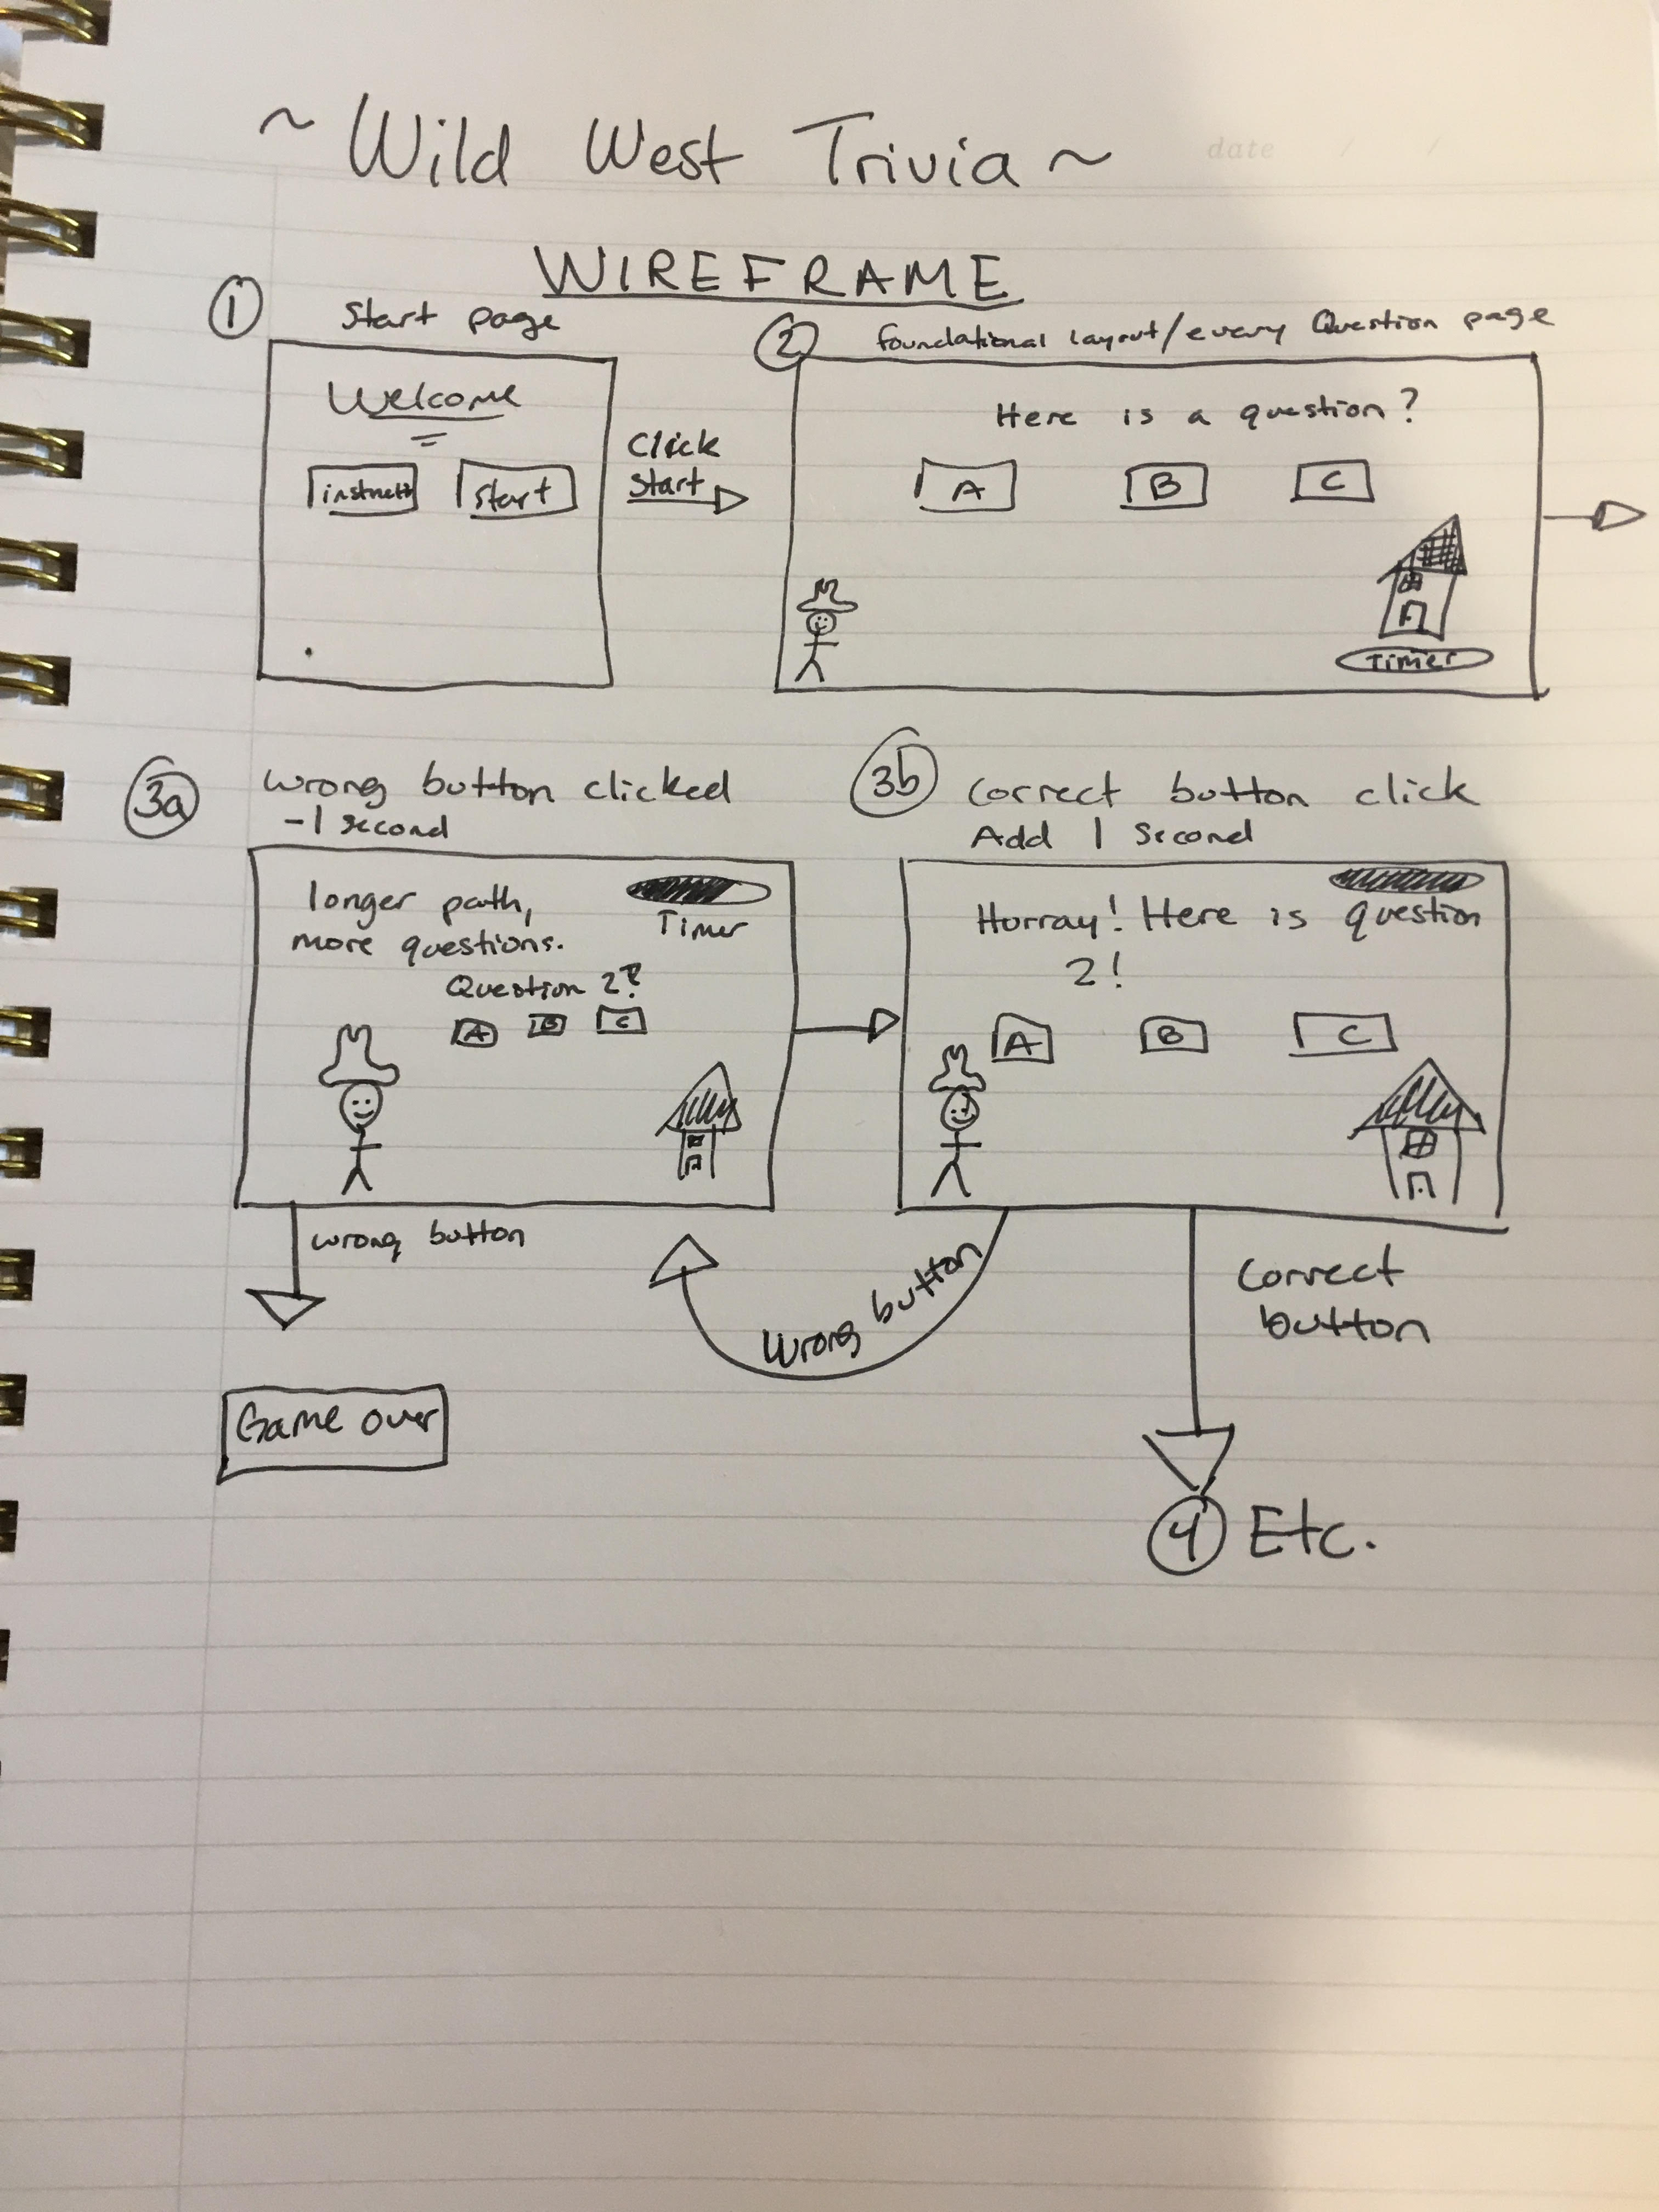 ~ Wild West Trivia ~
date / /
WIREFRAME
1 Start page
Welcome
instruct Start
Click
Start
2 foundational layout/every Question page
Here is a question?
A B C
Timer
3a wrong button clicked
-1 second
longer path,
more questions.
Timer
Question 2?
A B C
wrong button
Game over
3b Correct button click
Add 1 Second
Hurray! Here is question
2!
A B C
Wrong button
Correct
button
4 Etc.